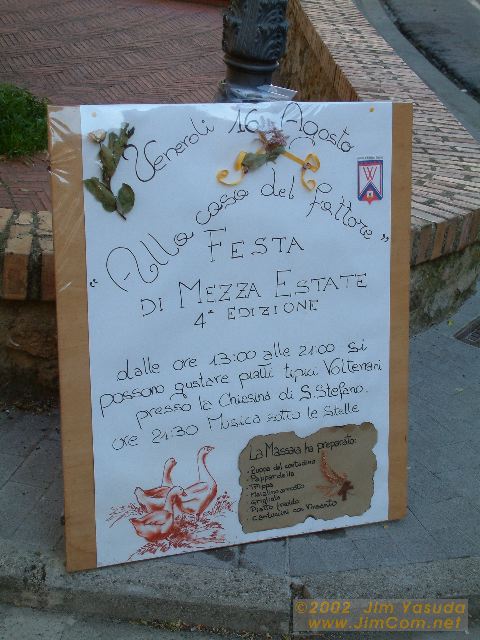 Venerdi 16 Agosto
"Alla casa del fattore"
FESTA
DI MEZZA ESTATE
4ª EDIZIONE
dalle ore 13:00 alle 21:00 si
possono gustare piatti tipici Volterrani
presso la Chiesina di S. Stefano.
ore 21:30 Musica sotto le Stelle
LA MASSAIA ha preparato:
• Zuppa del contadino
• Pappardella
• Trippa
• Maialino arrosto
• Grigliata
• Piatto freddo
• Cantuccini con Vinsanto
©2002 Jim Yasuda
www.JimCom.net